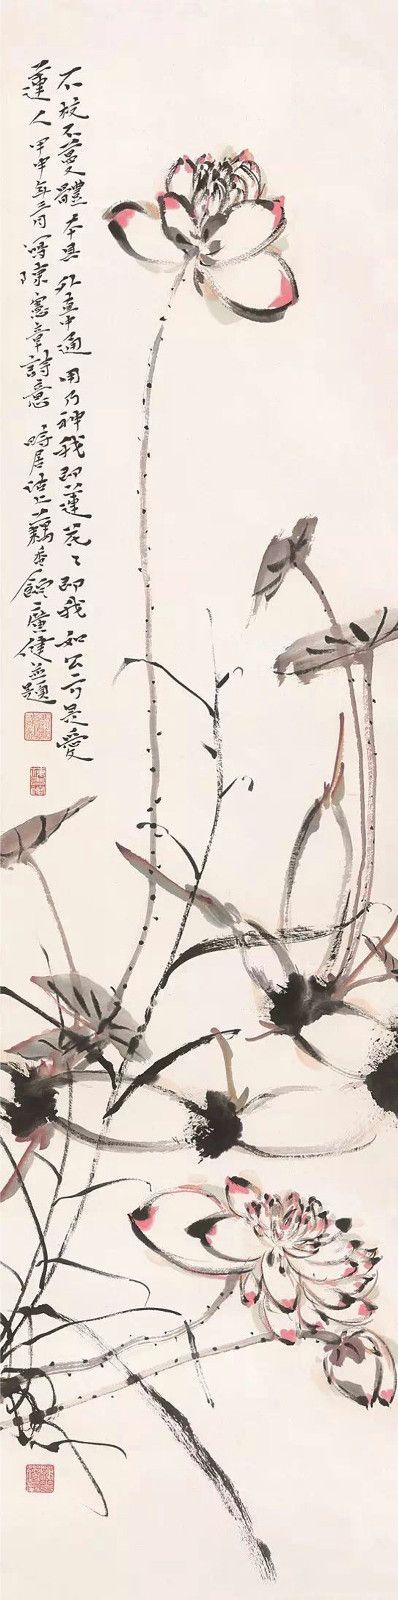 不枝不蔓體本具外直中通用乃神我即蓮花々即我如公可是愛
蓮人 甲申年三月寫陳憲章詩意 時居沽上藕香館廣健並題